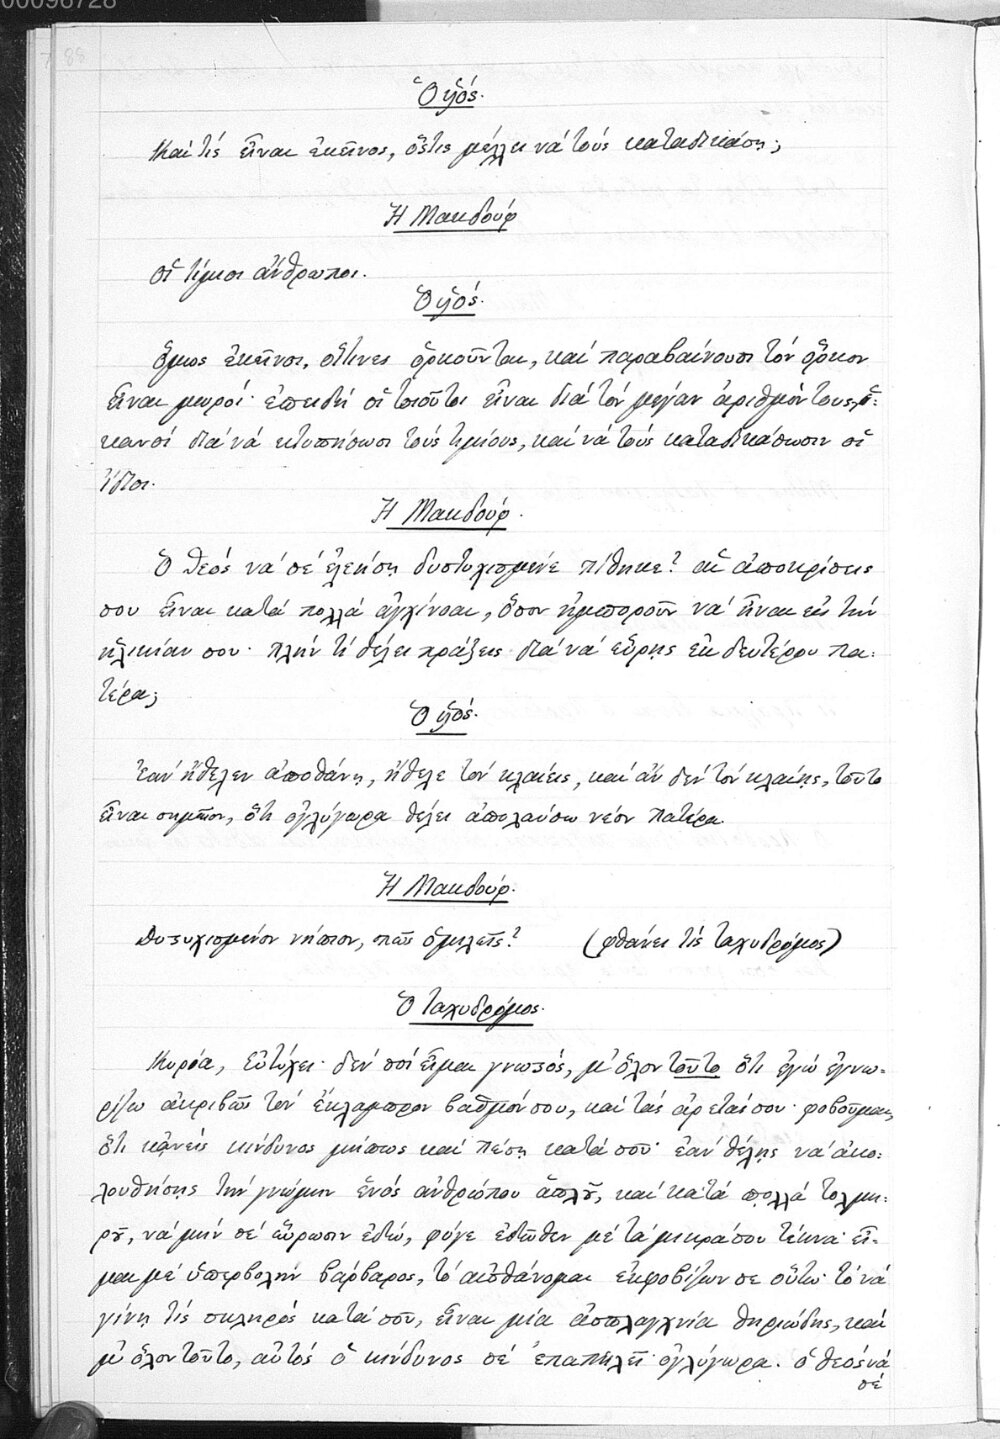 00096728
Ὁ ὑιός.
Καί τίς εἶναι ἐκεῖνος, ὅςτις μέλλει νά τούς καταδικάσῃ;
Ἡ Μακδούφ
οἱ τίμιοι ἄνθρωποι.
Ὁ ὑιός.
ὅμως ἐκεῖνοι, οἵτινες ὁρκοῦνται, καί παραβαίνουσι τόν ὅρκον
εἶναι μωροί· ἐπειδή οἱ τοιοῦτοι εἶναι διά τόν μέγαν ἀριθμόν τους, ἱ-
κανοί διά νά κτυπήσωσι τούς τιμίους, καί νά τούς καταδικάσωσιν οἱ
ἴδιοι.
Ἡ Μακδούφ.
Ὁ θεός νά σέ ἐλεήσῃ δυστυχισμένε πίθηκε! αἱ ἀποκρίσεις
σου εἶναι κατά πολλά ἀγχίνοαι, ὅσον ἠμποροῦν νά ἦναι εἰς τήν
ἡλικίαν σου· πλήν τί θέλει πράξεις διά νά εὕρῃς ἐκ δευτέρου πα-
τέρα;
Ὁ ὑιός.
Ἐάν ἤθελεν ἀποθάνῃ, ἤθελε τόν κλαίεις, καί ἄν δέν τόν κλαίῃς, τοῦτο
εἶναι σημεῖον, ὅτι ὀγλύγωρα θέλει ἀπολαύσω νέον πατέρα.
Ἡ Μακδούφ.
Δυςυχισμένον νήπιον, πῶς ὁμιλεῖς! (φθάνει τίς ταχυδρόμος)
Ὁ ταχυδρόμος.
Κυρία, εὐτύχει· δέν σοί εἶμαι γνωςός, μ' ὅλον τοῦτο ὅτι ἐγώ ἐγνω-
ρίζω ἀκριβῶς τόν ἔκλαμπρον βαθμόν σου, καί τάς ἀρετάς σου· φοβοῦμαι,
ὅτι κᾀνείς κίνδυνος μήπως καί πέσῃ κατά σοῦ· ἐάν θέλῃς νά ἀκο-
λουθήσῃς τήν γνώμην ἑνός ἀνθρώπου ἁπλοῦ, καί κατά πολλά τολμη-
ροῦ, νά μήν σέ εὕρωσιν ἐδῶ, φύγε ἐδῶθεν μέ τά μικρά σου τέκνα· εἶ-
μαι μέ ὑπερβολήν βάρβαρος, τό αἰσθάνομαι ἐκφοβίζων σε οὕτω· τό νά
γίνῃ τίς σκληρός κατά σοῦ, εἶναι μία ἀσπλαγχνία θηριώδης, καί
μ' ὅλον τοῦτο, αὐτός ὁ κίνδυνος σέ ἐπαπειλεῖ ὀγλύγωρα. ὁ θεός νά
σέ